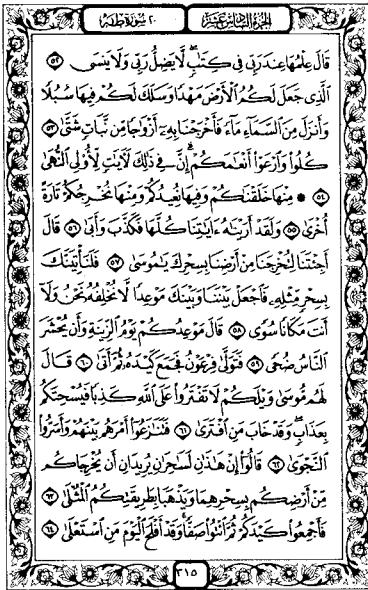 الجزء السادس عشر ٢٠ سورة طه
قَالَ عِلْمُهَا عِندَ رَبِّي فِي كِتَٰبٍ لَّا يَضِلُّ رَبِّي وَلَا يَنسَى ﴿٥٢﴾
ٱلَّذِي جَعَلَ لَكُمُ ٱلْأَرْضَ مَهْدًا وَسَلَكَ لَكُمْ فِيهَا سُبُلًا
وَأَنزَلَ مِنَ ٱلسَّمَآءِ مَآءً فَأَخْرَجْنَا بِهِۦٓ أَزْوَٰجًا مِّن نَّبَاتٍ شَتَّىٰ ﴿٥٣﴾
كُلُوا۟ وَٱرْعَوْا۟ أَنْعَٰمَكُمْ ۗ إِنَّ فِي ذَٰلِكَ لَءَايَٰتٍ لِّأُو۟لِي ٱلنُّهَىٰ
﴿٥٤﴾ ۞ مِنْهَا خَلَقْنَٰكُمْ وَفِيهَا نُعِيدُكُمْ وَمِنْهَا نُخْرِجُكُمْ تَارَةً
أُخْرَىٰ ﴿٥٥﴾ وَلَقَدْ أَرَيْنَٰهُ ءَايَٰتِنَا كُلَّهَا فَكَذَّبَ وَأَبَىٰ ﴿٥٦﴾ قَالَ
أَجِئْتَنَا لِتُخْرِجَنَا مِنْ أَرْضِنَا بِسِحْرِكَ يَٰمُوسَىٰ ﴿٥٧﴾ فَلَنَأْتِيَنَّكَ
بِسِحْرٍ مِّثْلِهِۦ فَٱجْعَلْ بَيْنَنَا وَبَيْنَكَ مَوْعِدًا لَّا نُخْلِفُهُۥ نَحْنُ وَلَآ
أَنتَ مَكَانًا سُوًى ﴿٥٨﴾ قَالَ مَوْعِدُكُمْ يَوْمُ ٱلزِّينَةِ وَأَن يُحْشَرَ
ٱلنَّاسُ ضُحًى ﴿٥٩﴾ فَتَوَلَّىٰ فِرْعَوْنُ فَجَمَعَ كَيْدَهُۥ ثُمَّ أَتَىٰ ﴿٦٠﴾ قَالَ
لَهُم مُّوسَىٰ وَيْلَكُمْ لَا تَفْتَرُوا۟ عَلَى ٱللَّهِ كَذِبًا فَيُسْحِتَكُم
بِعَذَابٍ ۖ وَقَدْ خَابَ مَنِ ٱفْتَرَىٰ ﴿٦١﴾ فَتَنَٰزَعُوٓا۟ أَمْرَهُم بَيْنَهُمْ وَأَسَرُّوا۟
ٱلنَّجْوَىٰ ﴿٦٢﴾ قَالُوٓا۟ إِنْ هَٰذَٰنِ لَسَٰحِرَٰنِ يُرِيدَانِ أَن يُخْرِجَاكُم
مِّنْ أَرْضِكُم بِسِحْرِهِمَا وَيَذْهَبَا بِطَرِيقَتِكُمُ ٱلْمُثْلَىٰ ﴿٦٣﴾
فَأَجْمِعُوا۟ كَيْدَكُمْ ثُمَّ ٱئْتُوا۟ صَفًّا ۚ وَقَدْ أَفْلَحَ ٱلْيَوْمَ مَنِ ٱسْتَعْلَىٰ ﴿٦٤﴾
٣١٥